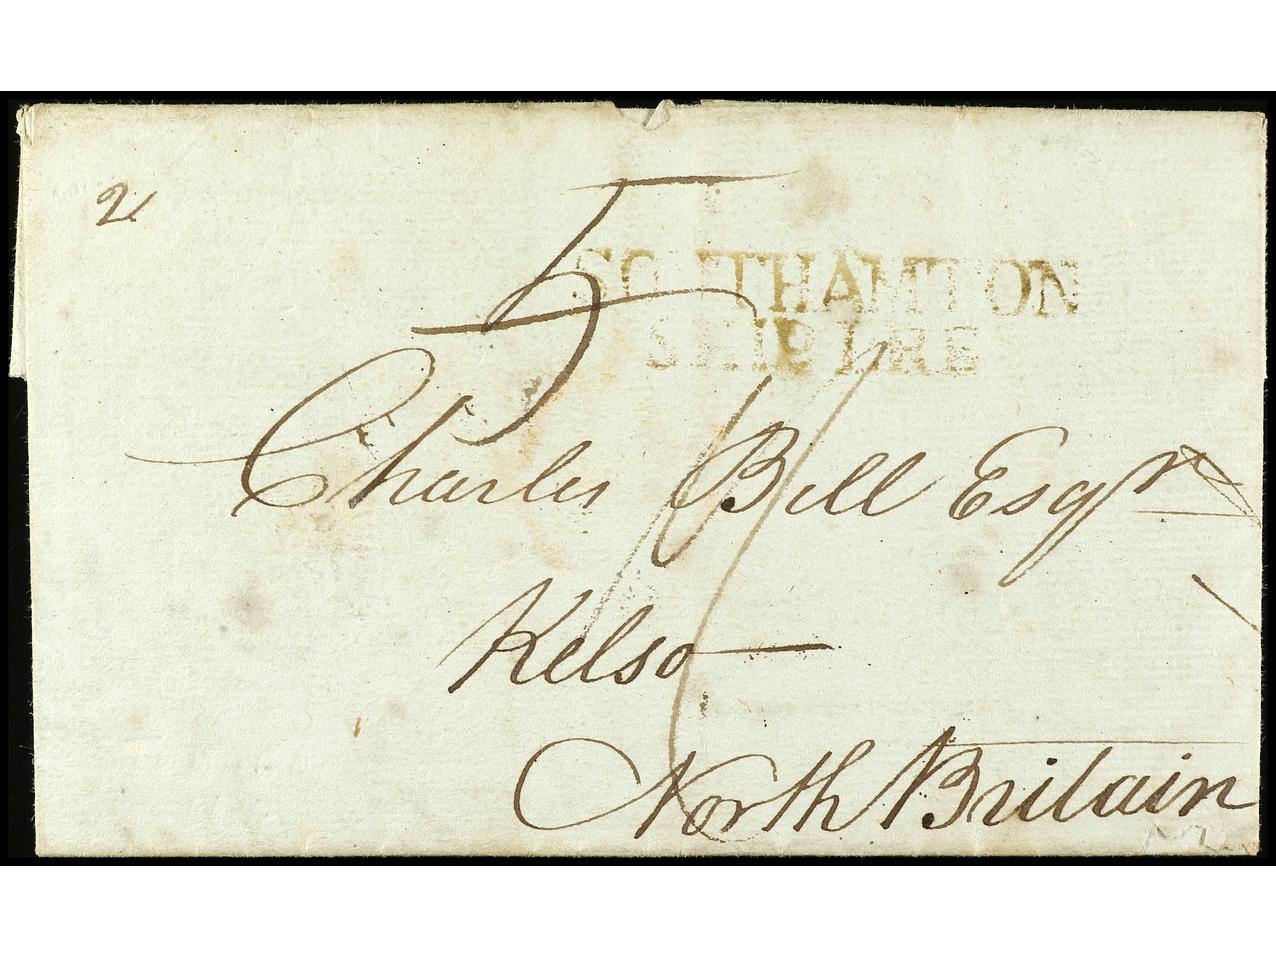 2
5
SOUTHAMTON
SHIP LRE
Charles Bell Esqr
Kelso
North Britain